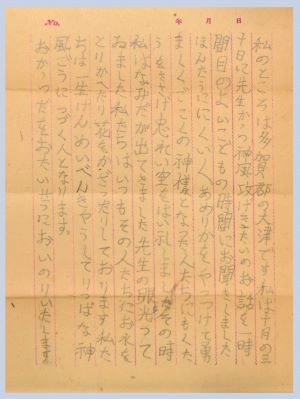 No. 年 月 日
私のところは多賀郡の大津です。私は十月の三
十日に先生から神風攻げきたいのお話を一時
間目のよいこどもの時間にお聞きしました
ほんたうににくいくあめりかをやつつけて勇
ましくごこくの神様となつた人たちにもくた
うをささげ忠れい空をはい礼しましたその時
私はなみだが出てきました先生の眼光つて
ゐました私たちはいつもその人たちにお水を
とりかへたり花をかざつたりしております私た
ちは一生けんめいべんきやうしてりつぱな神
風ごうにつづく人となります。
おからだをおたいせつにおいのりいたします